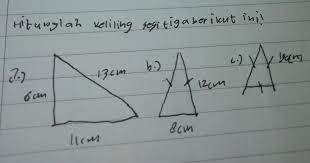 Hitunglah keliling segitiga berikut ini!
a.) 13cm b.) c.)
6cm 12cm
11cm 8cm